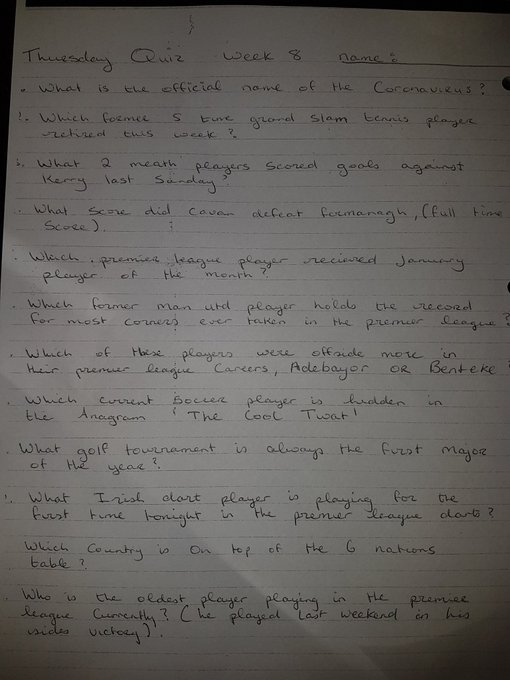 Thursday Quiz week 8 name:
. What is the official name of the Coronavirus?
2. Which former 5 time grand slam tennis player
retired this week?
3. What 2 meath players scored goals against
Kerry last Sunday?
. What score did Cavan defeat formanagh, (full time
score).
. Which premier league player recieved January
player of the month?
. Which former man utd player holds the record
for most corners ever taken in the premier league?
. Which of these players were offside more in
their premier league careers, Adebayor OR Benteke
. Which current soccer player is hidden in
the Anagram 'The Cool Twat'
. What golf tournament is always the first major
of the year?
. What Irish dart player is playing for the
first time tonight in the premier league darts?
Which country is on top of the 6 nations
table?
. Who is the oldest player playing in the premier
league currently? (he played last weekend in his
sides victory).